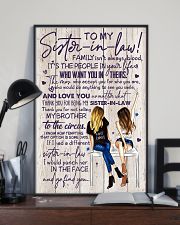 TO MY
Sister-in-law!
FAMILY isn't always blood,
IT'S THE PEOPLE IN your life
WHO WANT YOU IN THEIRS.
The ones who accept you for who you are,
who would do anything to see you smile,
AND LOVE YOU no matter what.
THANK YOU FOR BEING MY SISTER-IN-LAW
Thank you for not selling
MY BROTHER
TO the circus.
I KNOW HOW TEMPTING
THAT OPTION IS SOME DAYS.
IF I had a different
sister-in-law
I would punch her
IN THE FACE
and go find you.